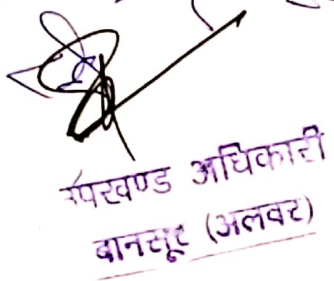 उपखण्ड अधिकारी
बानसूर (अलवर)